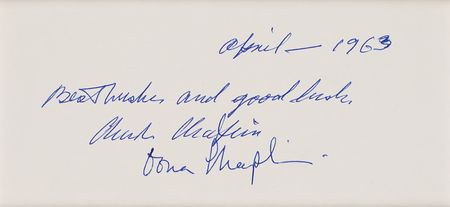 April — 1963
Best wishes and good luck
Charlie Chaplin
Oona Chaplin.